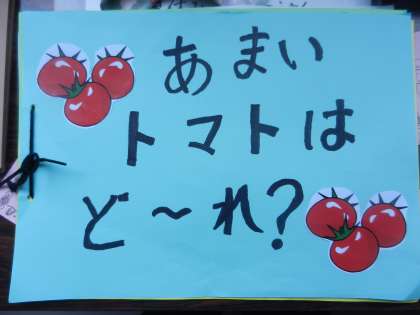 あまい
トマトは
ど〜れ?